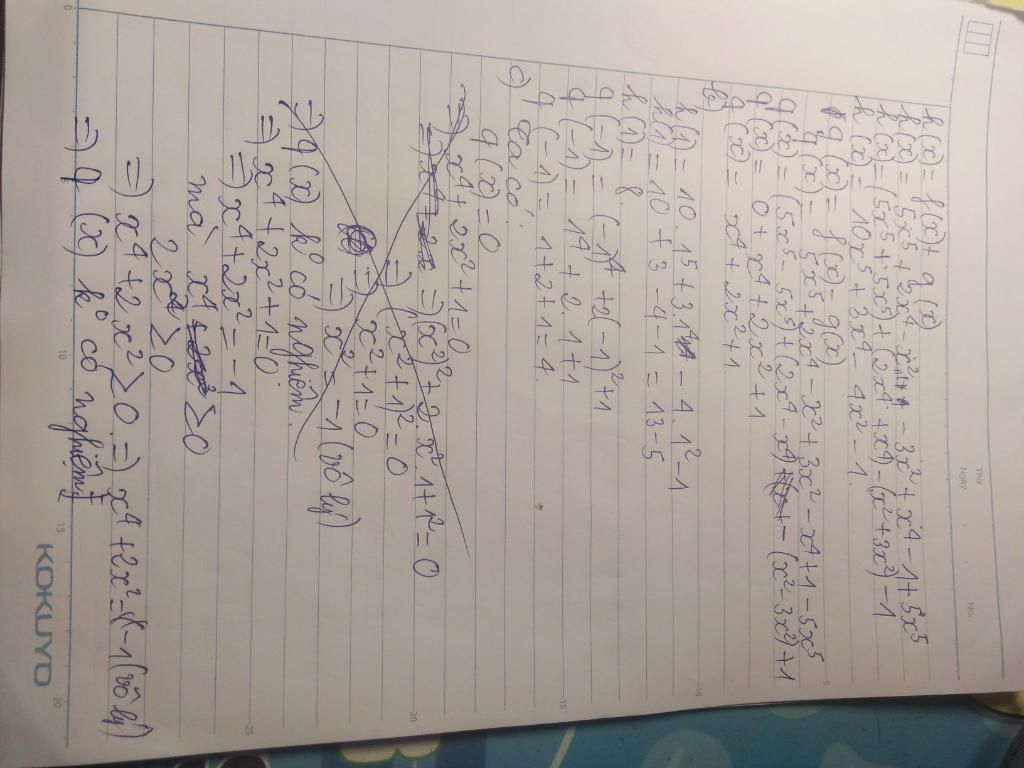 Thứ
Ngày
No.
h(x) = f(x) + g(x)
h(x) = 5x⁵ + 2x⁴ - x² - 3x² + x⁴ - 1 + 5x⁵
h(x) = (5x⁵ + 5x⁵) + (2x⁴ + x⁴) - (x² + 3x²) - 1
h(x) = 10x⁵ + 3x⁴ - 4x² - 1.
q(x) = f(x) - g(x)
q(x) = 5x⁵ + 2x⁴ - x² + 3x² - x⁴ + 1 - 5x⁵
q(x) = (5x⁵ - 5x⁵) + (2x⁴ - x⁴) - (x² - 3x²) + 1
q(x) = 0 + x⁴ + 2x² + 1
q(x) = x⁴ + 2x² + 1
b)
h(1) = 10.1⁵ + 3.1⁴ - 4.1² - 1
h(1) = 10 + 3 - 4 - 1 = 13 - 5
h(1) = 8.
q(-1) = (-1)⁴ + 2(-1)² + 1
q(-1) = 1⁴ + 2.1 + 1
q(-1) = 1 + 2 + 1 = 4.
c) Ta có:
q(x) = 0
=) x⁴ + 2x² + 1 = 0
=) (x²)² + 2.x².1 + 1² = 0
=) (x² + 1)² = 0
=) x² + 1 = 0
=) x² = -1 (vô lý)
=) q(x) k° có nghiệm.
=) x⁴ + 2x² + 1 = 0
=) x⁴ + 2x² = -1
mà x⁴ ≥ 0
2x² ≥ 0
=) x⁴ + 2x² ≥ 0 =) x⁴ + 2x² = -1 (vô lý)
=) q(x) k° có nghiệm
KOKUYO
0
5
10
15
20
25
10
15
20